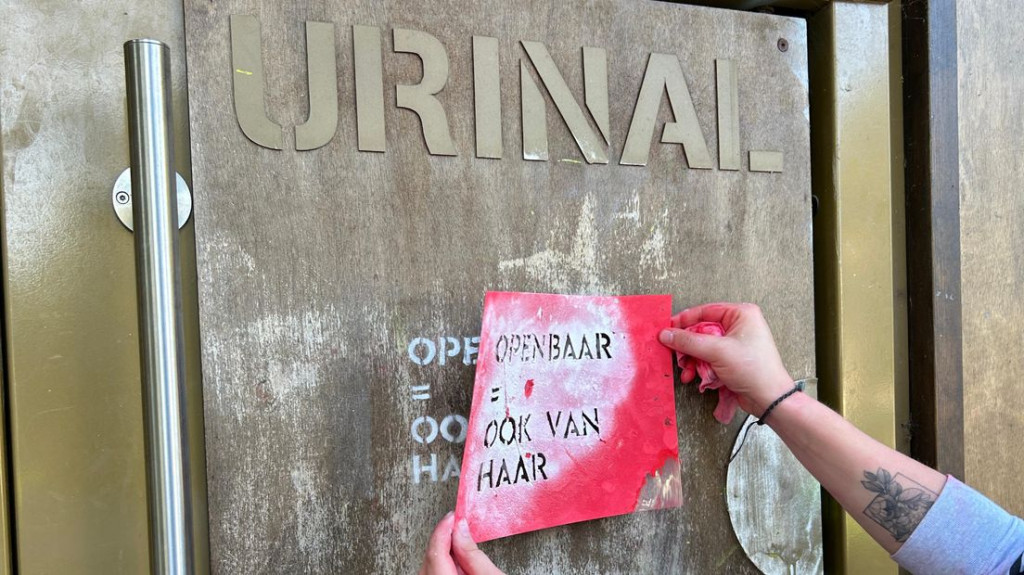 URINAL
OPE
=
OO
HA
OPENBAAR
=
OOK VAN
HAAR